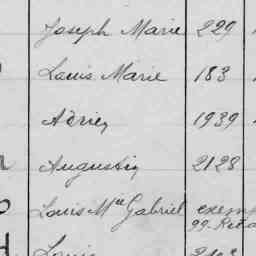 Joseph Marie 229
Louis Marie 183
Adrien 1939
Augustin 2128
Louis Mie Gabriel exemp
99. Réca
Louis